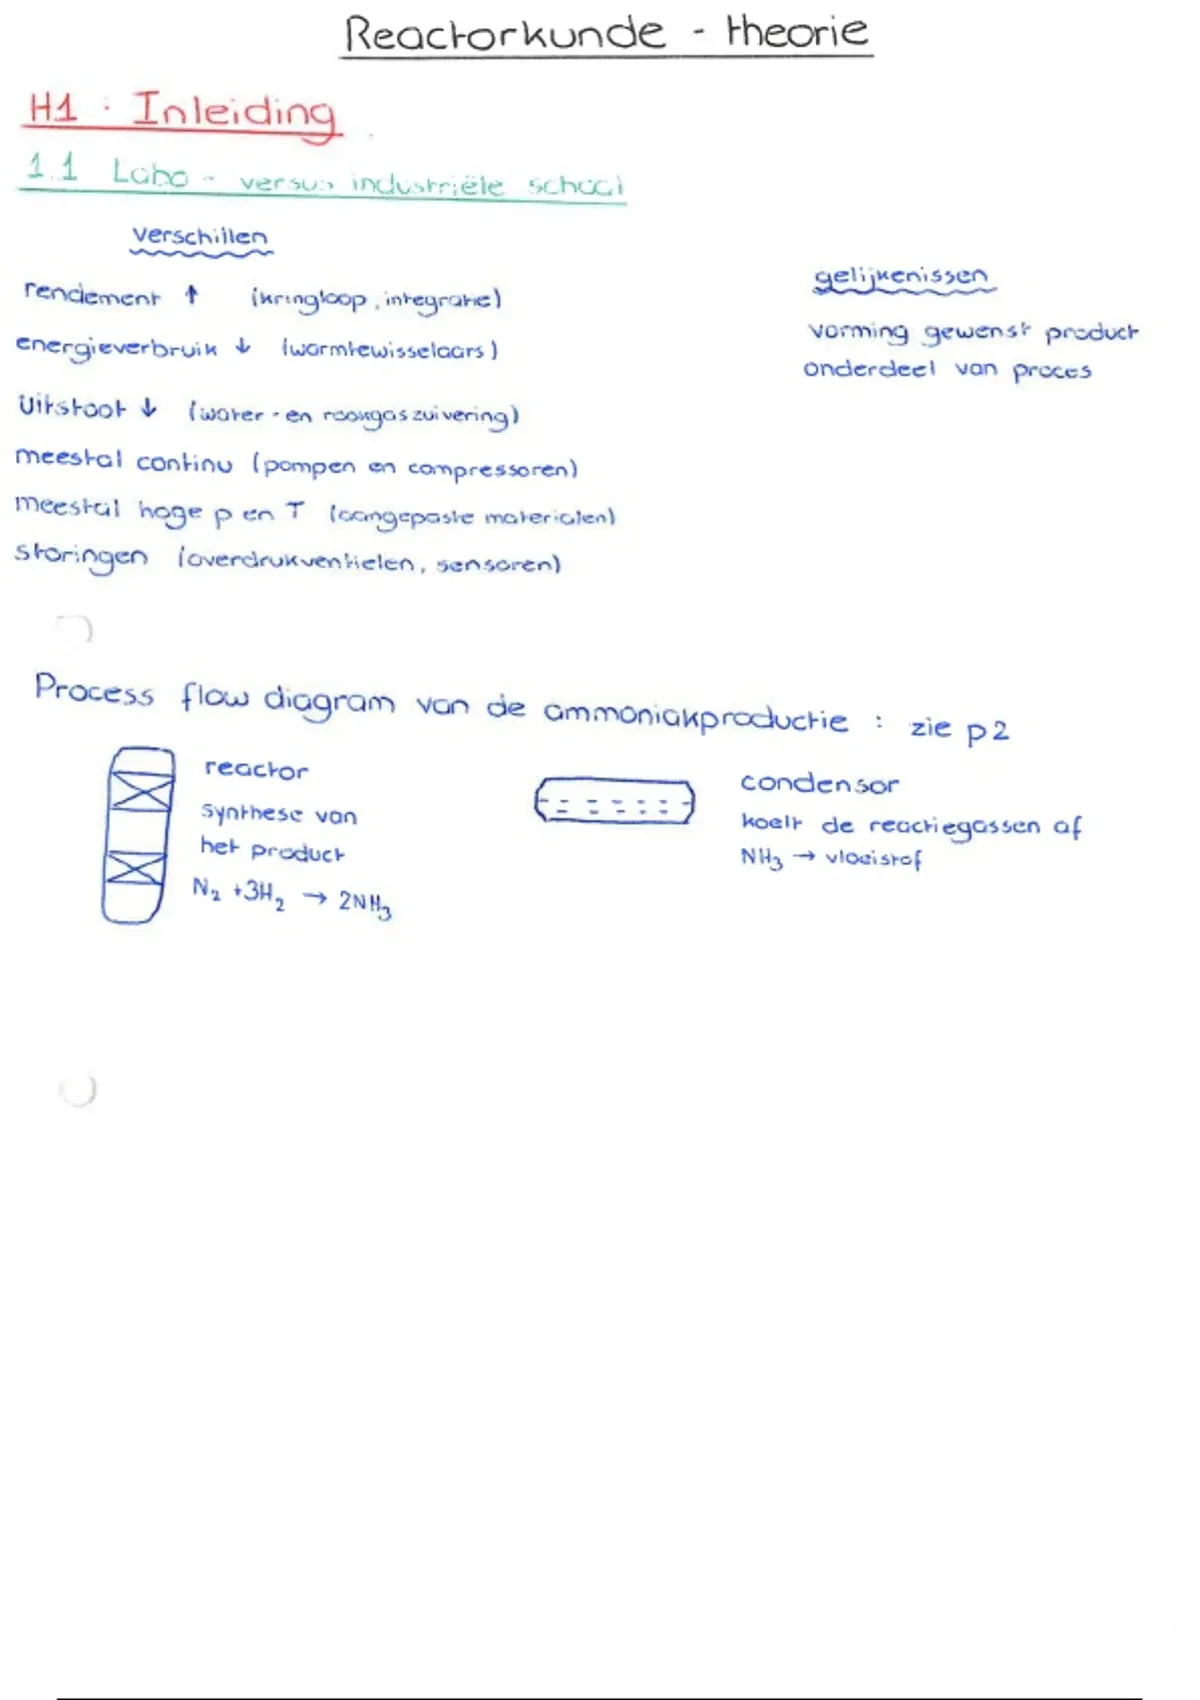 Reactorkunde - theorie
H1 : Inleiding
1.1 Labo - versus industriële schaal
verschillen
rendement ↑ (kringloop, integratie)
energieverbruik ↓ (warmtewisselaars)
Uitstoot ↓ (water - en rookgaszuivering)
meestal continu (pompen en compressoren)
meestal hoge p en T (aangepaste materialen)
storingen (overdrukventielen, sensoren)
gelijkenissen
vorming gewenst product
onderdeel van proces
Process flow diagram van de ammoniakproductie : zie p2
reactor
synthese van
het product
N₂ + 3H₂ → 2NH₃
condensor
koelt de reactiegassen af
NH₃ → vloeistof